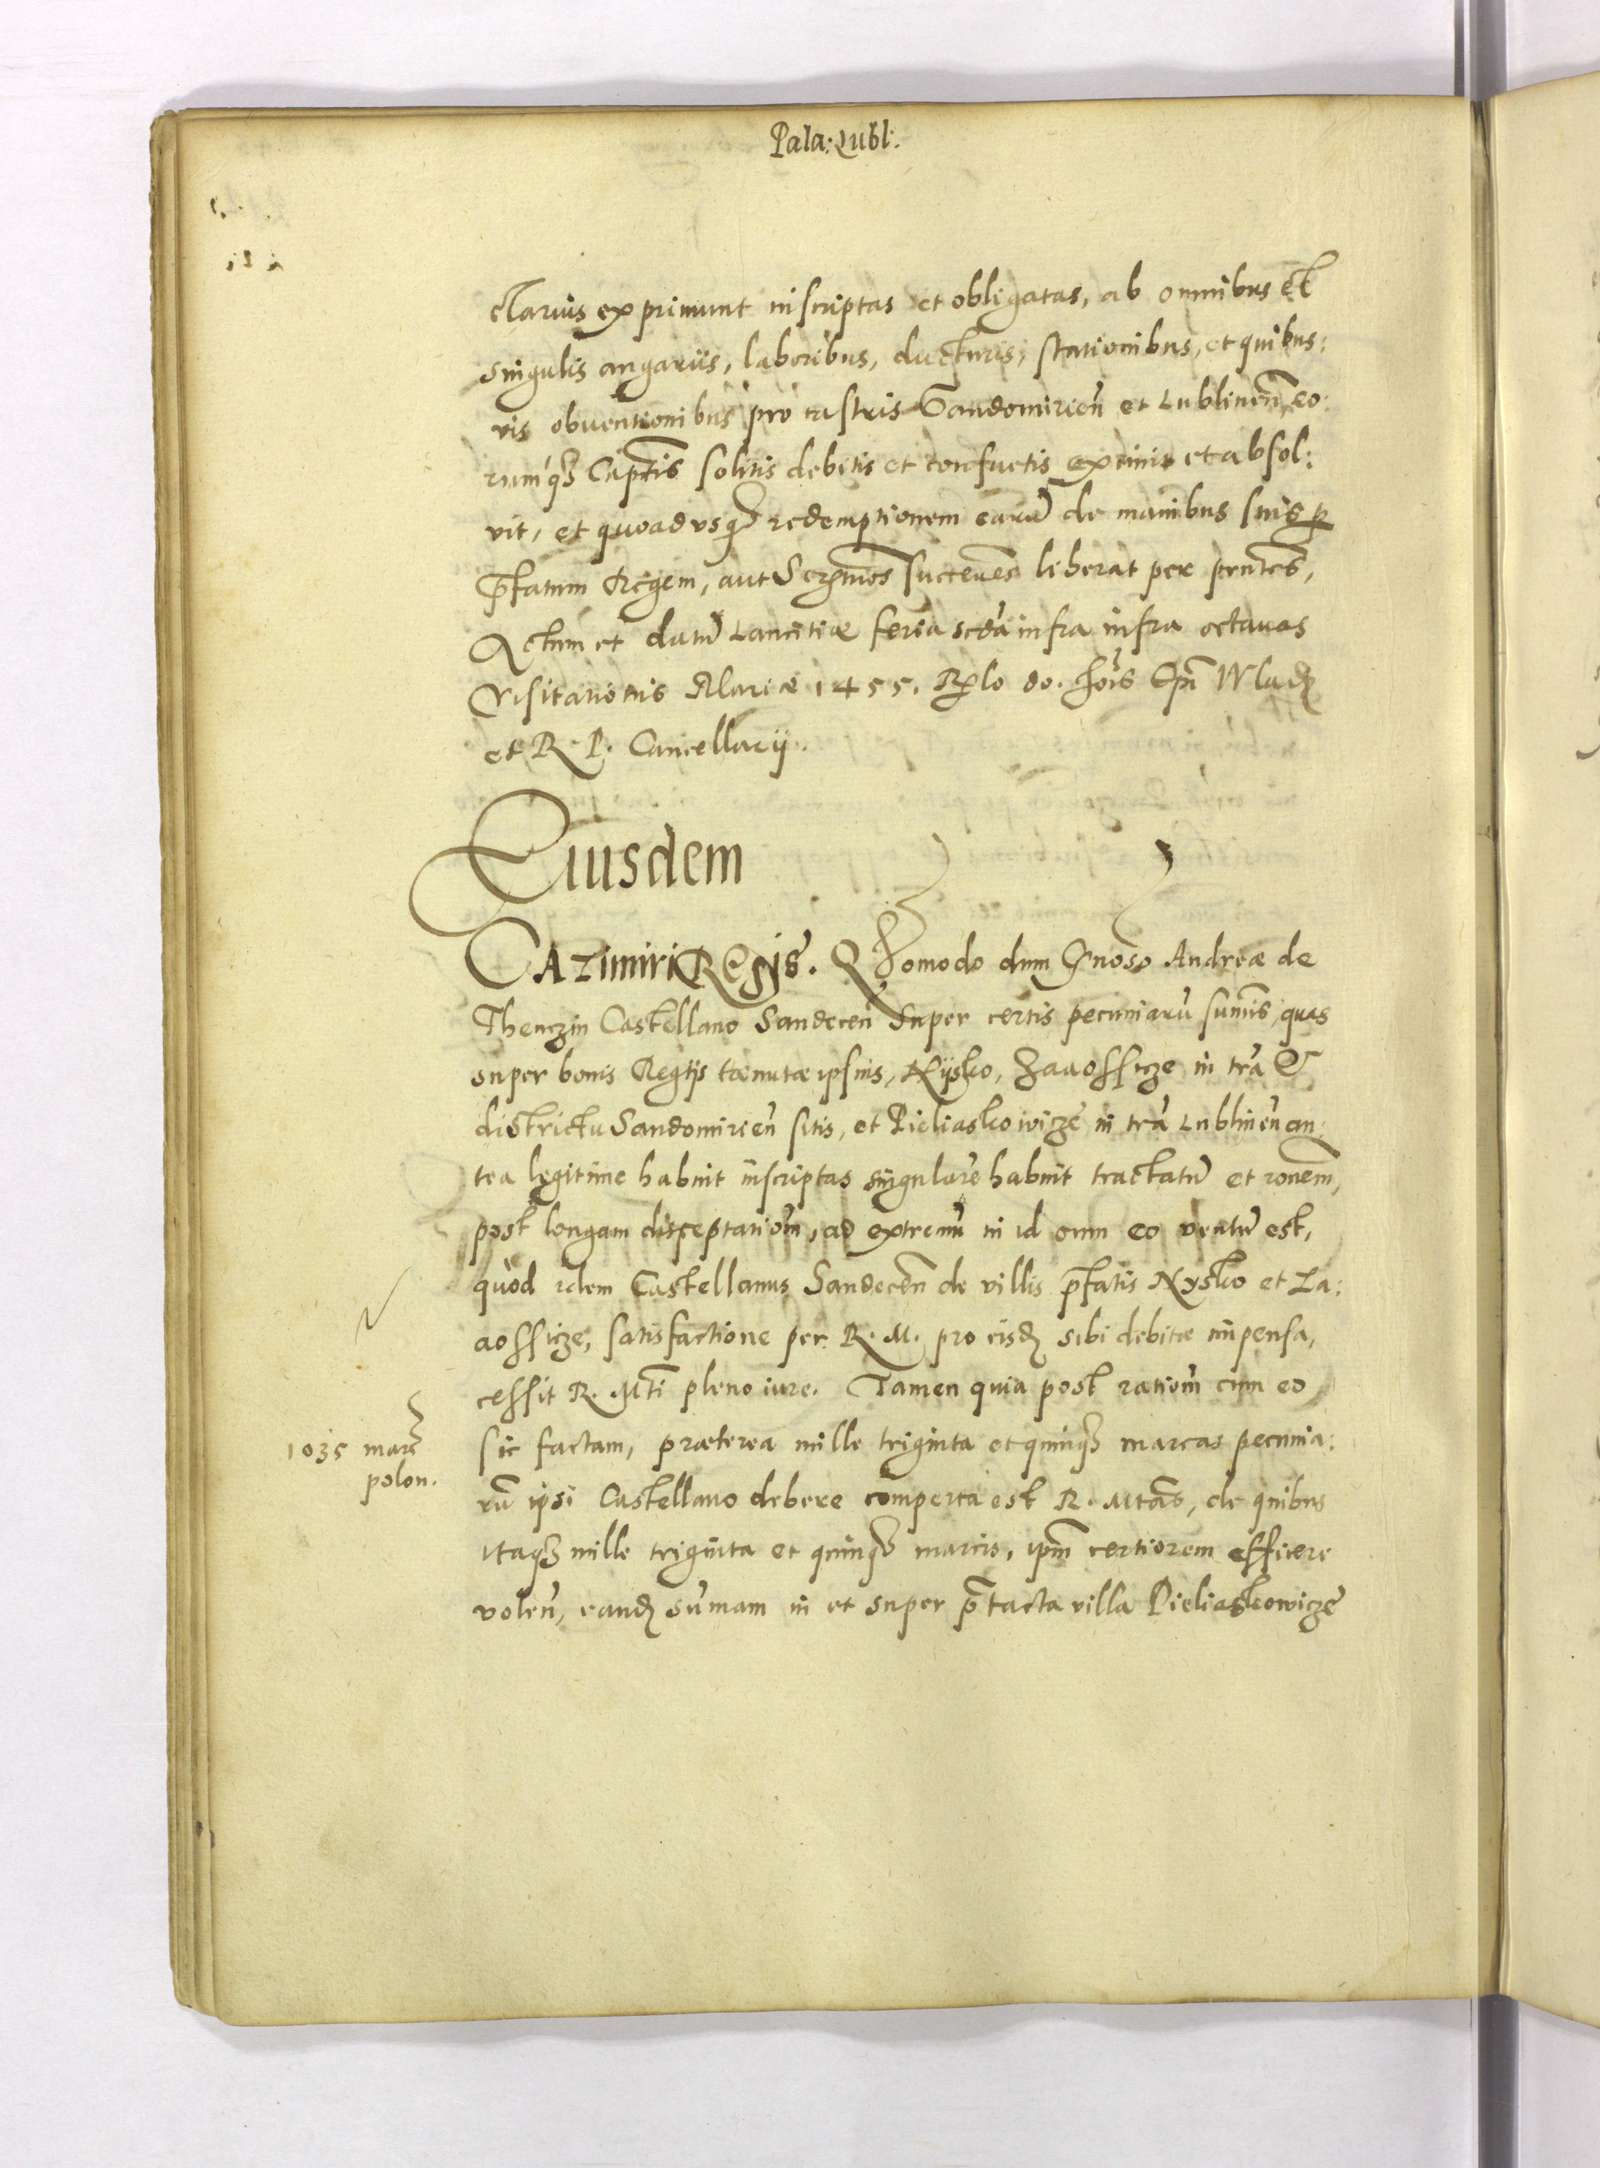 Pala: Lubl:
clarius exprimunt inscriptas et obligatas, ab omnibus et
singulis angariis, laboribus, ducturis, stationibus, et quibus:
vis obventionibus pro castris Sandomirien̄ et Lublinen̄ eo:
rumq꜄ Cap̄tis solitis debitis et consuetis eximit et absol:
vit, et quoadusq꜄ redemptionem earū de manibus suis p̱
p̄fatum Regem, aut Ser̄mos succeen̄es liberat per p̄ntes,
Actum et datū Lancitiæ feria sc̄da infra infra octavas
Visitationis Mariæ 1455. R̄lo do. Jo̅is Ep̄i Wlad̄
et R. P. Cancellarij.
Eiusdem
Cazimiri Regis. Quomodo dum G̅noso Andreæ de
Thenczin Castellano Sandecen̄ super certis pecuniarū sum̄is, quas
super bonis Regijs tenutæ ipsius, Nÿsko, Zaaossicze in tr̄a &
districtu Sandomirien̄ sitis, et Pieliaskowicze in tr̄a Lublinen̄ an:
tea legitime habuit inscriptas singularē habuit tractatū et ro̅nem,
post longam disceptatio̅m, ad extremū in id cum eo ventū est,
quòd idem Castellanus Sandecen̄ de villis p̄fatis Nysko et Za:
aossicze, satisfactione per R. M. pro eisd̄ sibi debitæ impensa,
cessit R. Mti pleno iure. Tamen quia post ratio̅m cum eo
1035 marc̄
polon.
sic factam, præterea mille triginta et quinq꜄ marcas pecunia:
rū ipsi Castellano debere comperta est R. Mtas, de quibus
itaq꜄ mille triginta et quinq꜄ marcis, ip̄m certiorem efficere
volen̄, eand̄ sum̄am in et super p̄tacta villa Pieliaskowicze